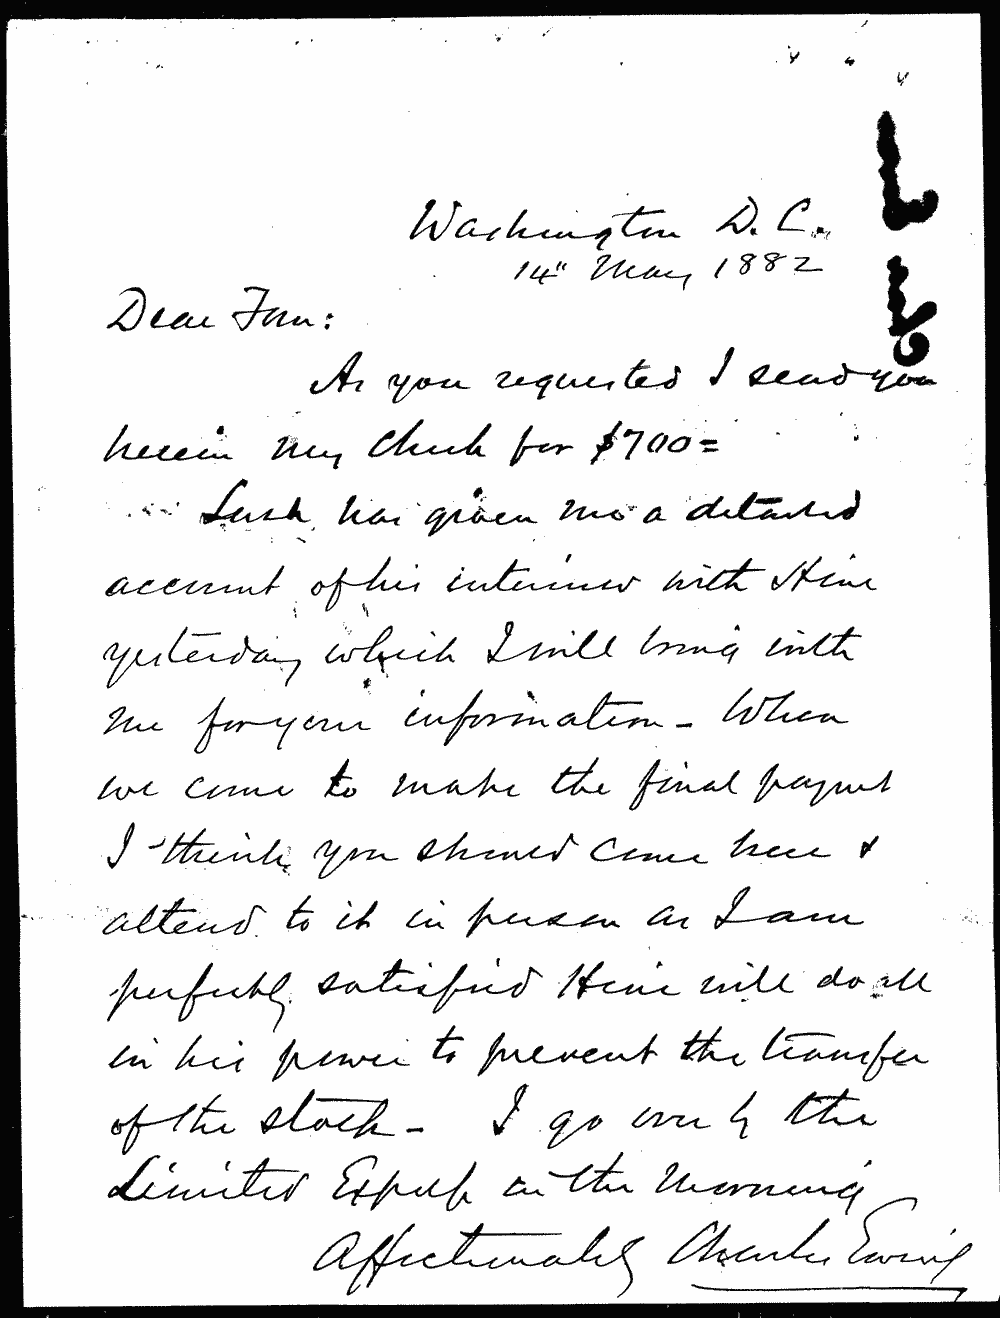 Washington D. C.
14" May 1882
Dear Tom:
As you requested I send you
herein my check for $700=
Lusk has given me a detailed
account of his interview with Hine
yesterday which I will bring with
me for your information - When
we come to make the final paymet
I think you should come here &
attend to it in person as I am
perfectly satisfied Hine will do all
in his power to prevent the transfer
of the stock - I go over by the
Limited Express in the morning
Affectionately Charles Ewing